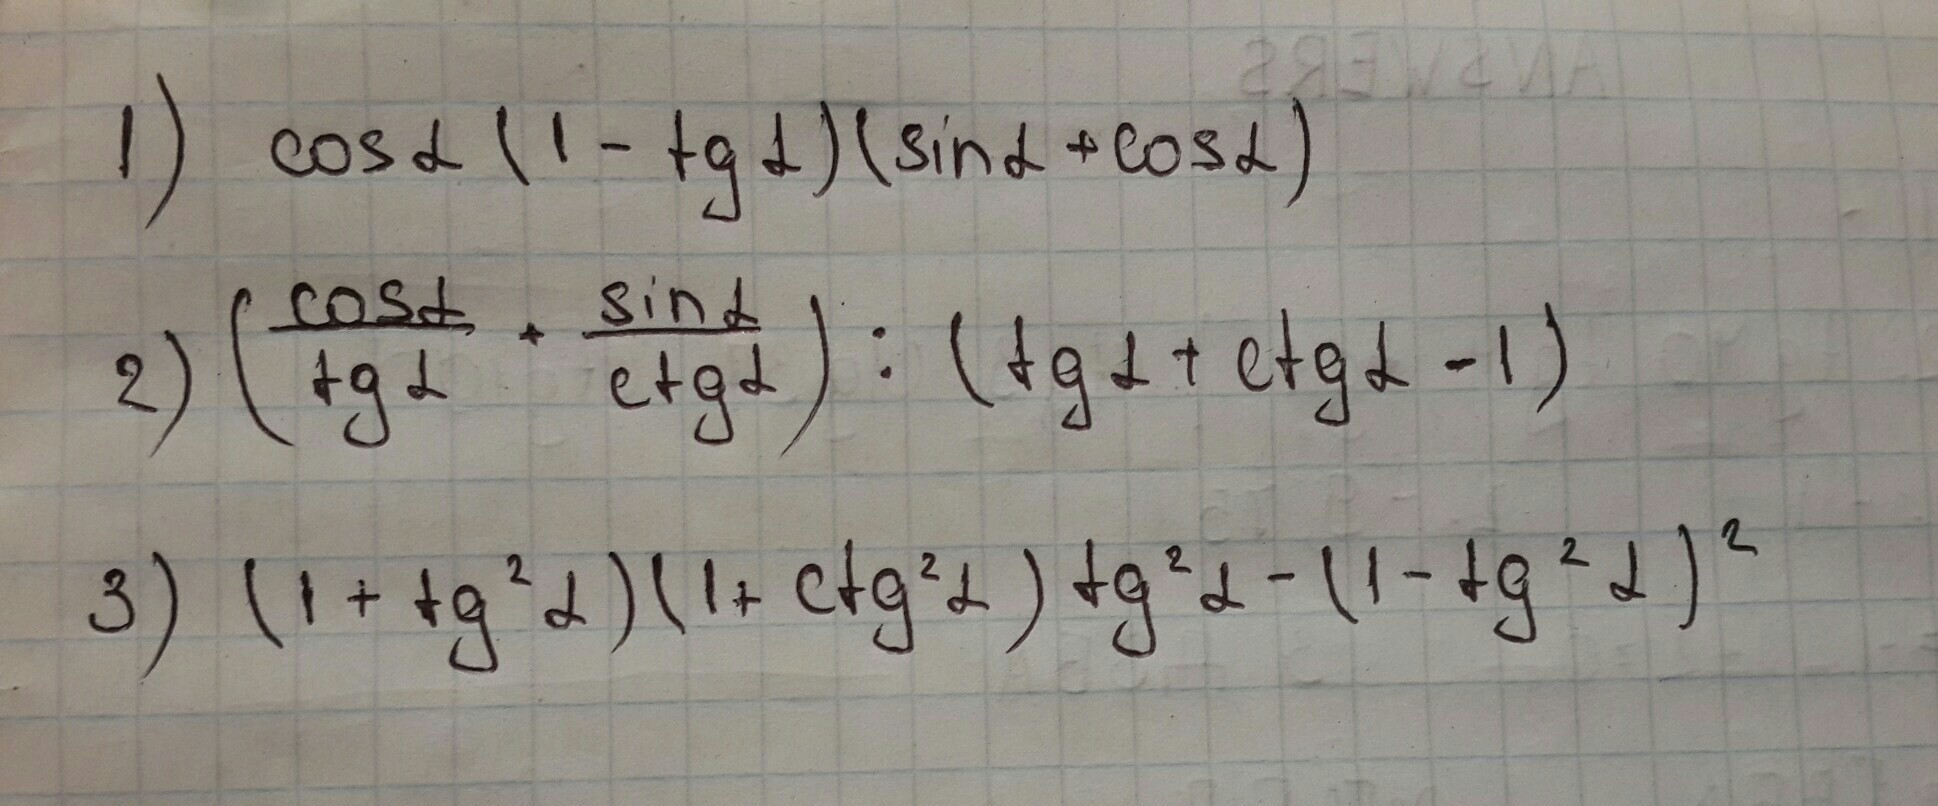 1) cos α (1 - tg α)(sin α + cos α)
2) (cos α / tg α + sin α / ctg α) : (tg α + ctg α - 1)
3) (1 + tg² α)(1 + ctg² α) tg² α - (1 - tg² α)²